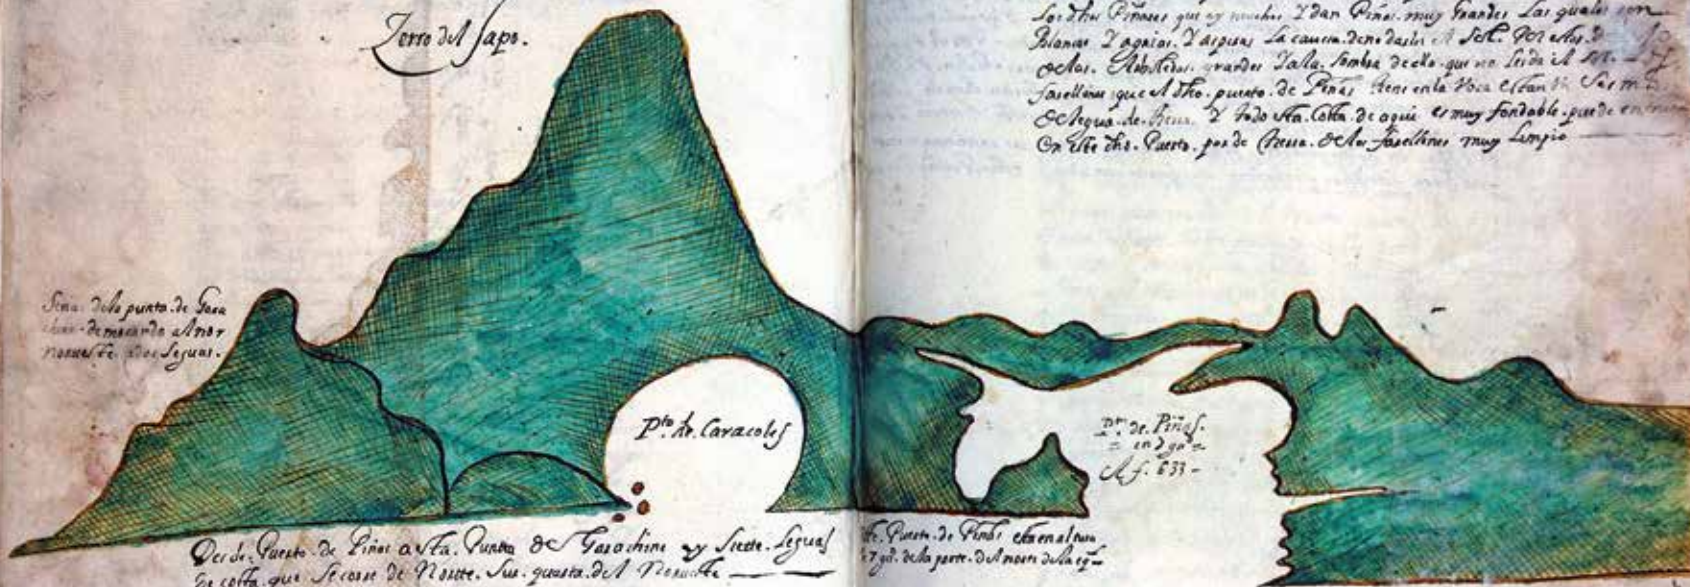 Zerro del Sapo.
los dhos Piñares que ay muchos Y dan Piñas. muy grandes Las quales son
Blancas Y agrias. Y asperas La causa. de no darles el Sol. Por estos.
grandes Y ala. sombra dello. que no les da el Sol.
farellones que el dho. puerto. de Piñas tiene en la Voca estan
Y toda sta. Costa. de aqui es muy fondable. puede
En este dho. Puerto. por de los farellones muy Limpio
Señas dela punta. de Gara
chine demorando al nor
norueste. dos Leguas.
Pto. de Caracoles
Pto. de Piñas.
en 7 gs
A f. 633
Desde. Puerto. de Piñas a sta. Punta de Garachine ay Siette. Leguas
De costa. que Se corre de Nortte. Sur. quarta. del Norueste
Puerto. de Piñas esta en altura
7 gs. dela parte. del norte dela eq